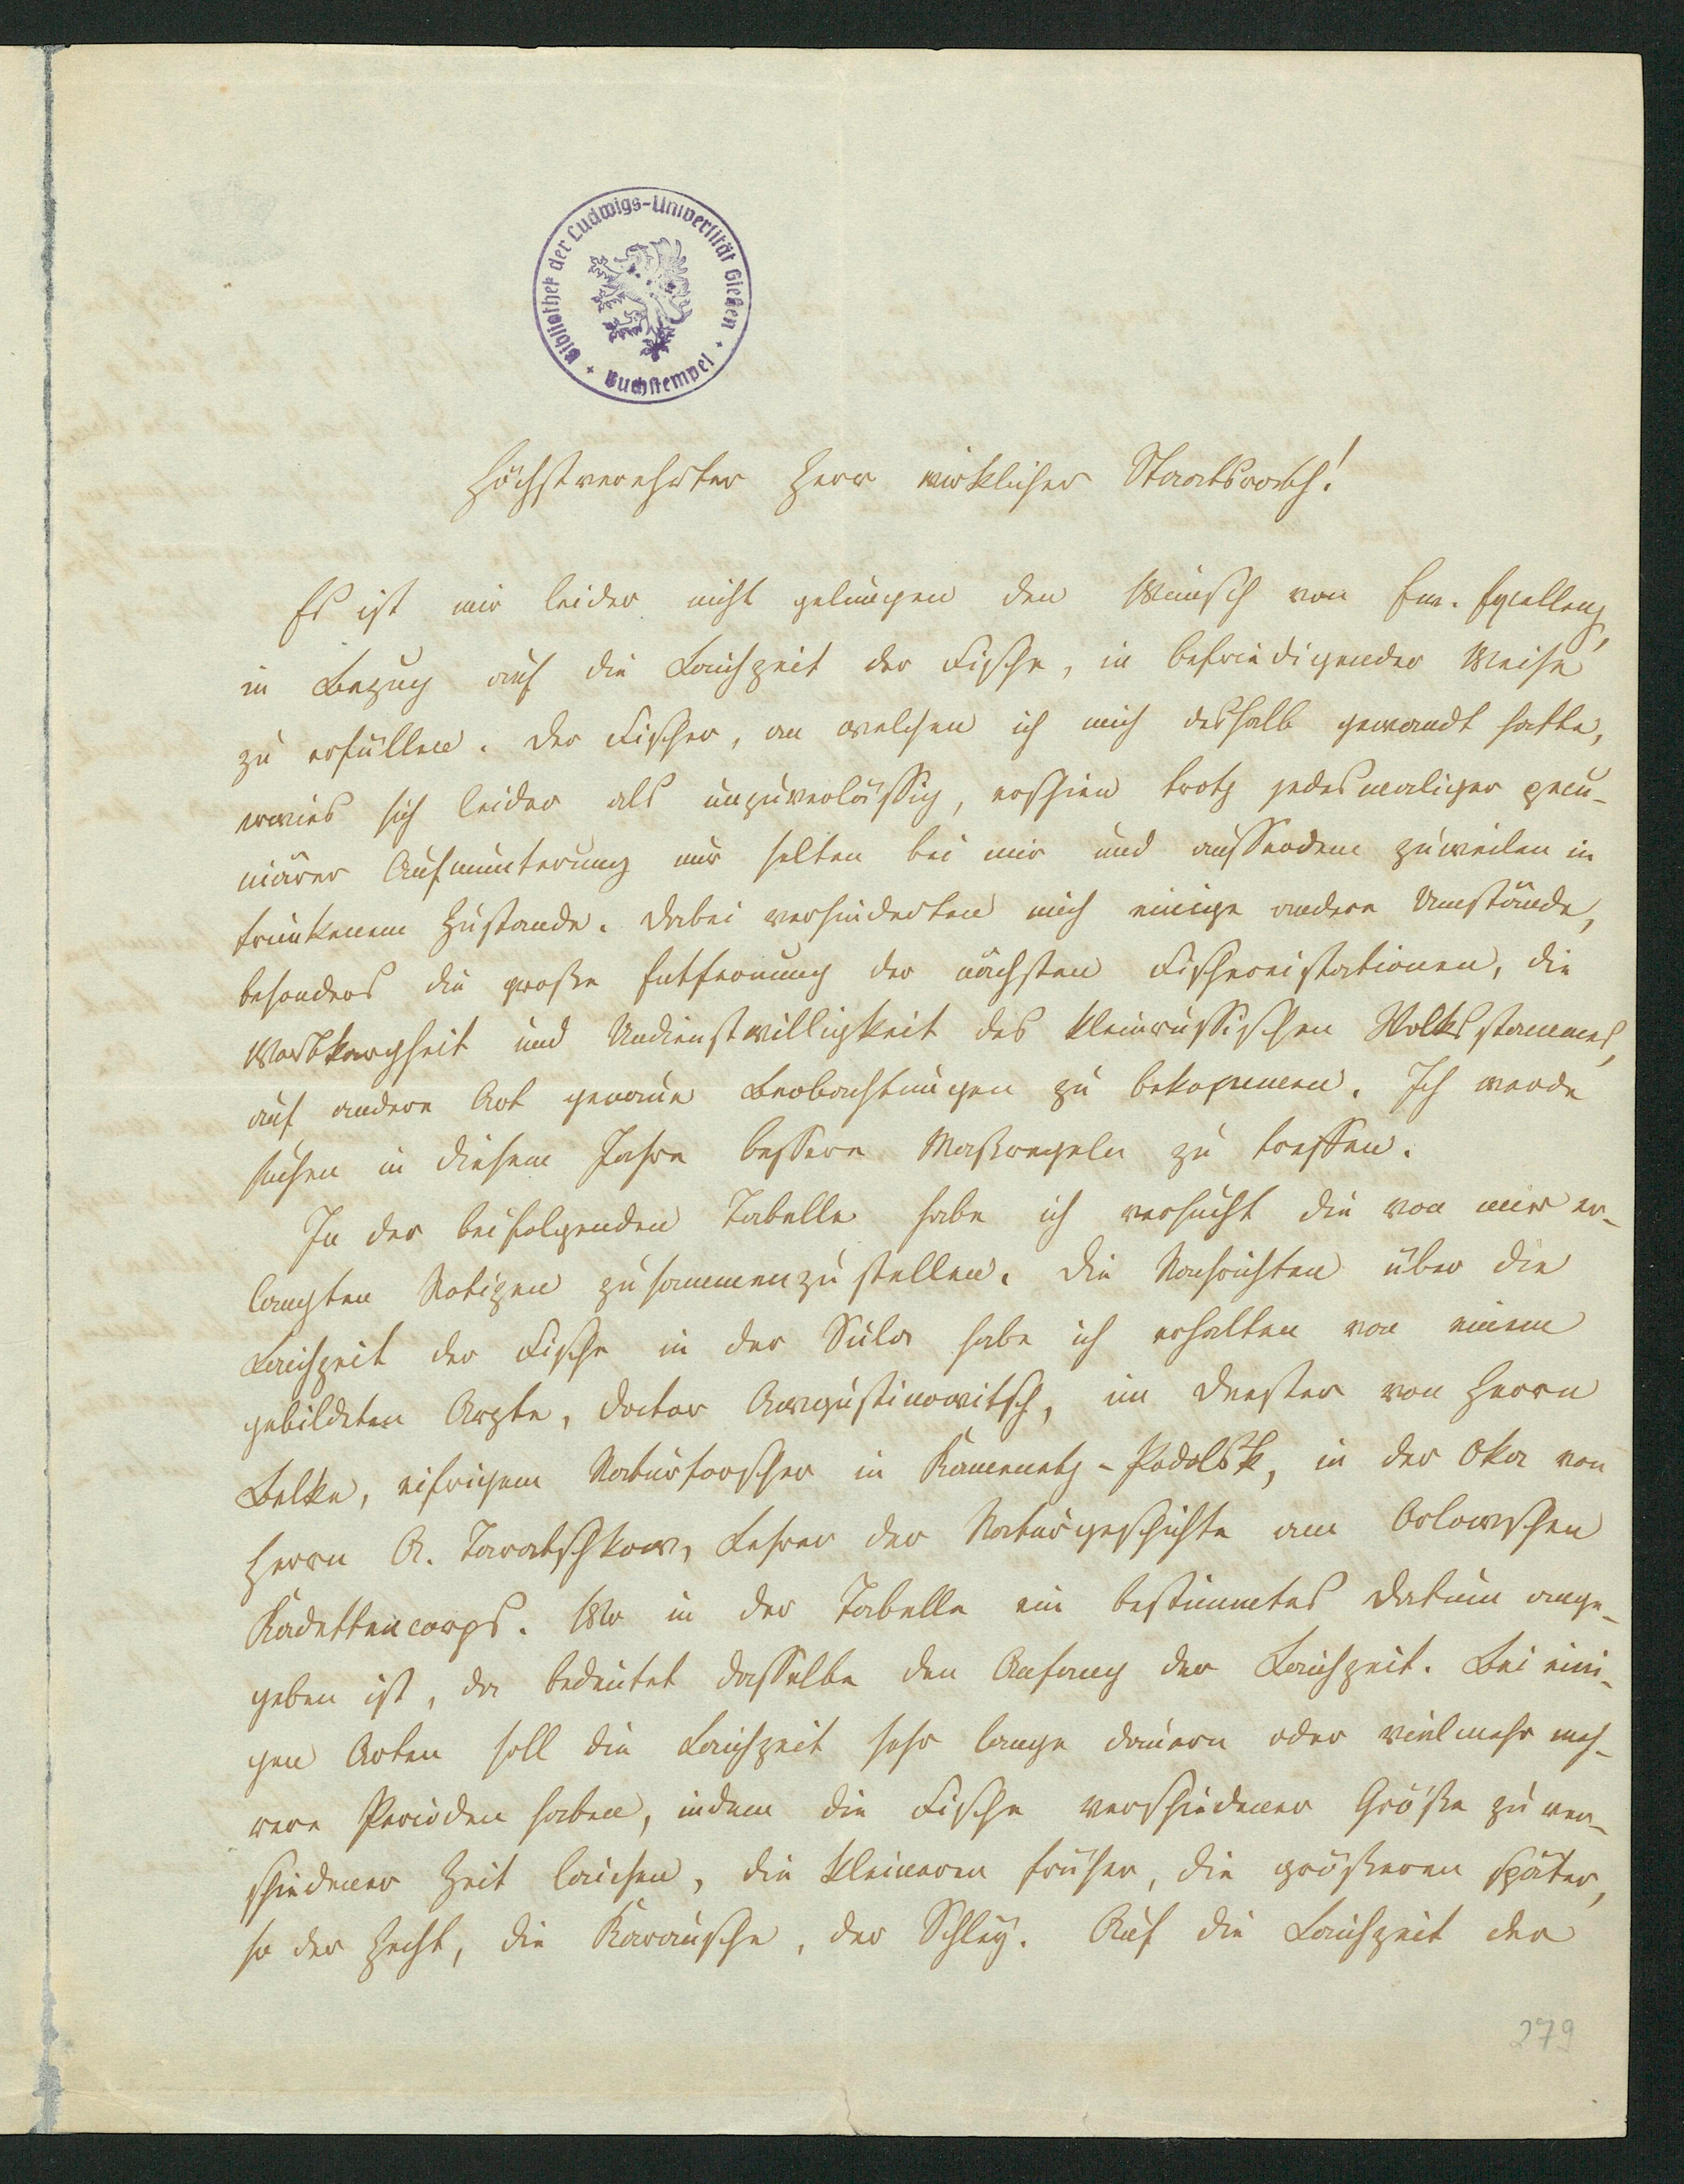 Bibliothek der Ludwigs-Universität Gießen
+ Buchstempel +
Höchstverehrter Herr wirklicher Staatsrath!
Es ist mir leider nicht gelungen den Wunsch von Ew. Excellenz,
in Bezug auf die Laichzeit der Fische, in befriedigender Weise
zu erfüllen. Der Fischer, an welchen ich mich deshalb gewandt hatte,
erwies sich leider als unzuverlässig, erschien trotz jedesmaliger pecu-
niärer Aufmunterung nur selten bei mir und ausserdem zuweilen in
trunkenem Zustande. Dabei verhinderten mich einige andere Umstände,
besonders die große Entfernung der nächsten Fischereistationen, die
Wortkargheit und Undienstwilligkeit des kleinrussischen Volksstammes,
auf andere Art genaue Beobachtungen zu bekommen. Ich werde
suchen in diesem Jahre bessere Maßregeln zu treffen.
In der beifolgenden Tabelle habe ich versucht die von mir er-
langten Notizen zusammenzustellen. Die Nachrichten über die
Laichzeit der Fische in der Sula habe ich erhalten von einem
gebildeten Arzte, Doctor Awgustinowitsch, im Dnester von Herrn
Belke, eifrigem Naturforscher in Kamenetz-Podolsk, in der Oka von
Herrn A. Taratschkow, Lehrer der Naturgeschichte am Orlowschen
Kadettencorps. Wo in der Tabelle ein bestimmtes Datum ange-
geben ist, da bedeutet dasselbe den Anfang der Laichzeit. Bei eini-
gen Arten soll die Laichzeit sehr lange dauern oder vielmehr meh-
rere Perioden haben, indem die Fische verschiedener Größe zu ver-
schiedener Zeit laichen, die kleineren früher, die größeren später,
so der Hecht, die Karausche, der Schley. Auf die Laichzeit der
279